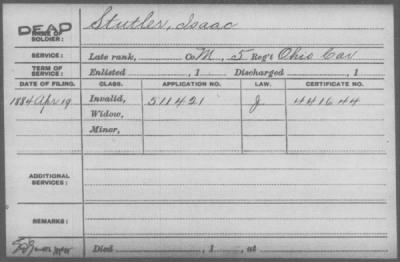 DEAD
NAME OF SOLDIER: Stutler, Isaac
SERVICE: Late rank, Co. M, 5 Reg't Ohio Cav
TERM OF SERVICE: Enlisted , 1 Discharged , 1
DATE OF FILING. CLASS. APPLICATION NO. LAW. CERTIFICATE NO.
1884 Apr 19 Invalid, 511421 J 441644
Widow,
Minor,
ADDITIONAL SERVICES:
REMARKS:
Died , 1 , at